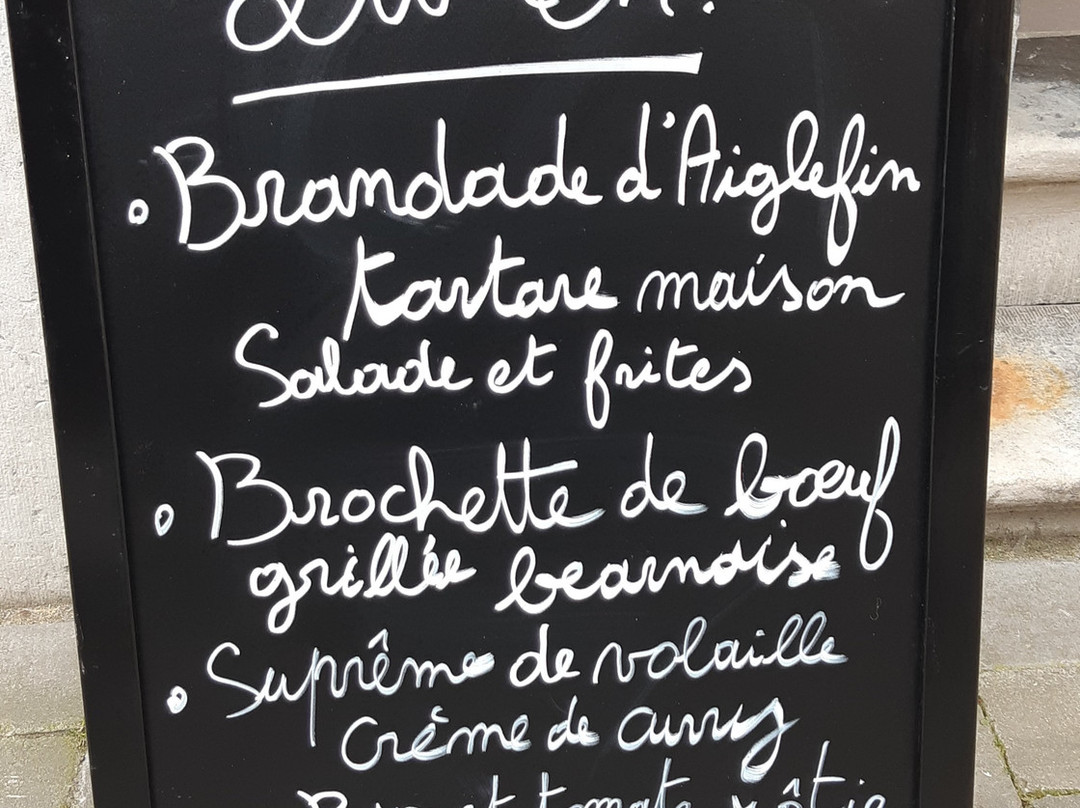 • Brandade d'Aiglefin
tartare maison
Salade et frites
• Brochette de bœuf
grillée bearnaise
• Suprême de volaille
Crème de curry
et tomate rôtie